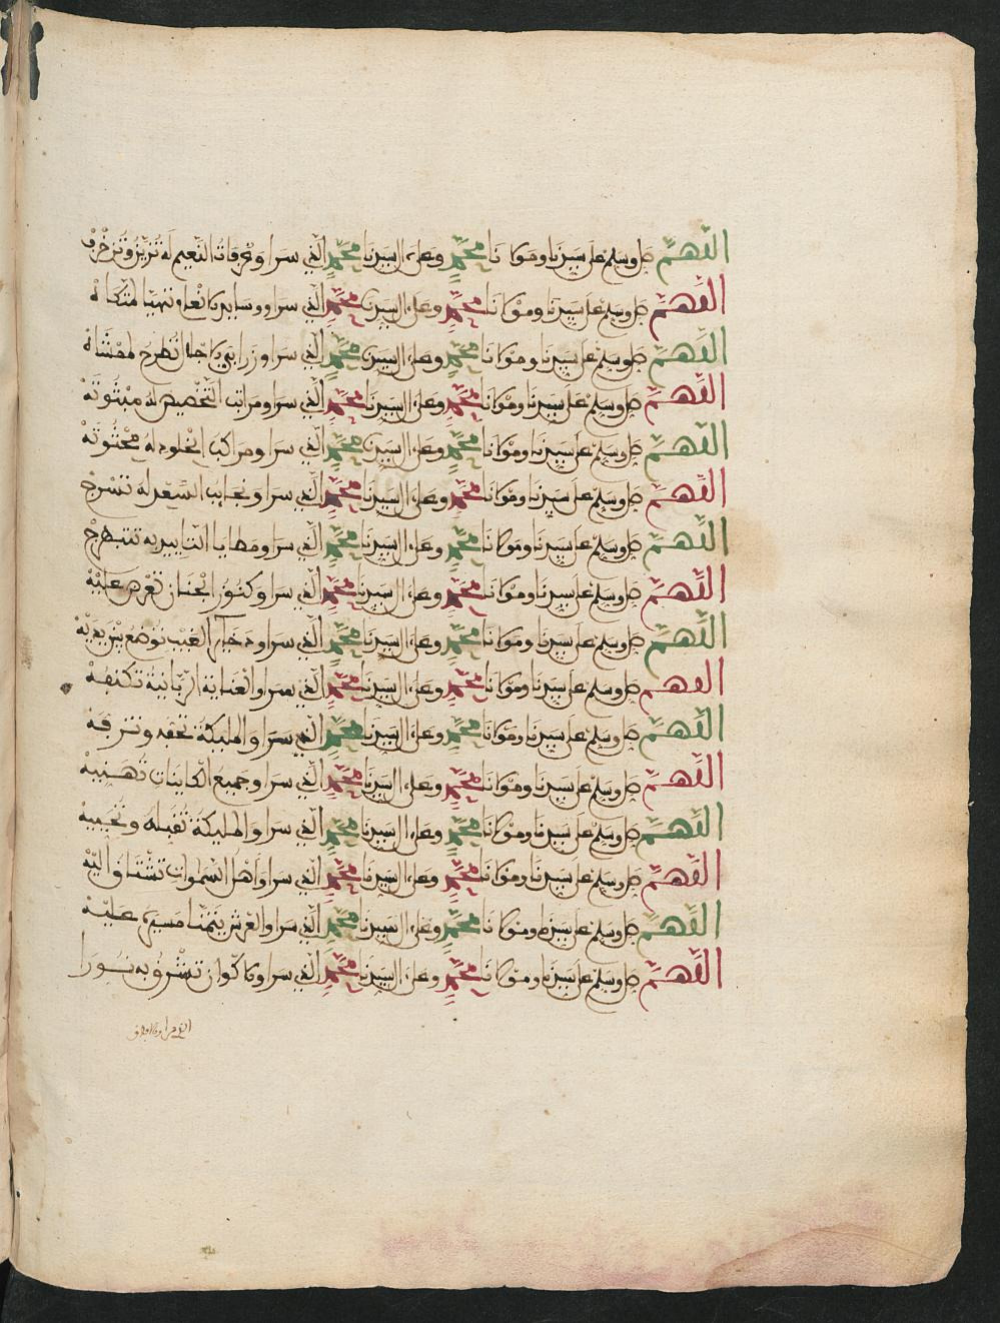 اللهم صل وسلم على سيدنا ومولانا محمد وعلى ءال سيدنا محمد الذي سرا وغرفات النعيم له تزين وتزخرف
اللهم صل وسلم على سيدنا ومولانا محمد وعلى ءال سيدنا محمد الذي سرا ووسايد تهيا لمتكاه
اللهم صل وسلم على سيدنا ومولانا محمد وعلى ءال سيدنا محمد الذي سرا وزرابي تطرح لممشاه
اللهم صل وسلم على سيدنا ومولانا محمد وعلى ءال سيدنا محمد الذي سرا ومراتب التخصيص له مبثوثة
اللهم صل وسلم على سيدنا ومولانا محمد وعلى ءال سيدنا محمد الذي سرا ومراكب الخلود له محثوثة
اللهم صل وسلم على سيدنا ومولانا محمد وعلى ءال سيدنا محمد الذي سرا ونجايب السعد له تسرج
اللهم صل وسلم على سيدنا ومولانا محمد وعلى ءال سيدنا محمد الذي سرا ومطايا التاييد به تتبهرج
اللهم صل وسلم على سيدنا ومولانا محمد وعلى ءال سيدنا محمد الذي سرا وكنوز الجنان تعرض عليه
اللهم صل وسلم على سيدنا ومولانا محمد وعلى ءال سيدنا محمد الذي سرا وذخاير الغيب توضع بين يديه
اللهم صل وسلم على سيدنا ومولانا محمد وعلى ءال سيدنا محمد الذي سرا والعناية الربانية تكنفه
اللهم صل وسلم على سيدنا ومولانا محمد وعلى ءال سيدنا محمد الذي سرا والمليكة تحفه وتزفه
اللهم صل وسلم على سيدنا ومولانا محمد وعلى ءال سيدنا محمد الذي سرا وجميع الكاينات تهنيه
اللهم صل وسلم على سيدنا ومولانا محمد وعلى ءال سيدنا محمد الذي سرا والمليكة تقبله وتحييه
اللهم صل وسلم على سيدنا ومولانا محمد وعلى ءال سيدنا محمد الذي سرا واهل السموات تشتاق اليه
اللهم صل وسلم على سيدنا ومولانا محمد وعلى ءال سيدنا محمد الذي سرا والعرش يتمنا مسيره عليه
اللهم صل وسلم على سيدنا ومولانا محمد وعلى ءال سيدنا محمد الذي سرا والاكوان تشرق به نورا
الذي سرا والافاق